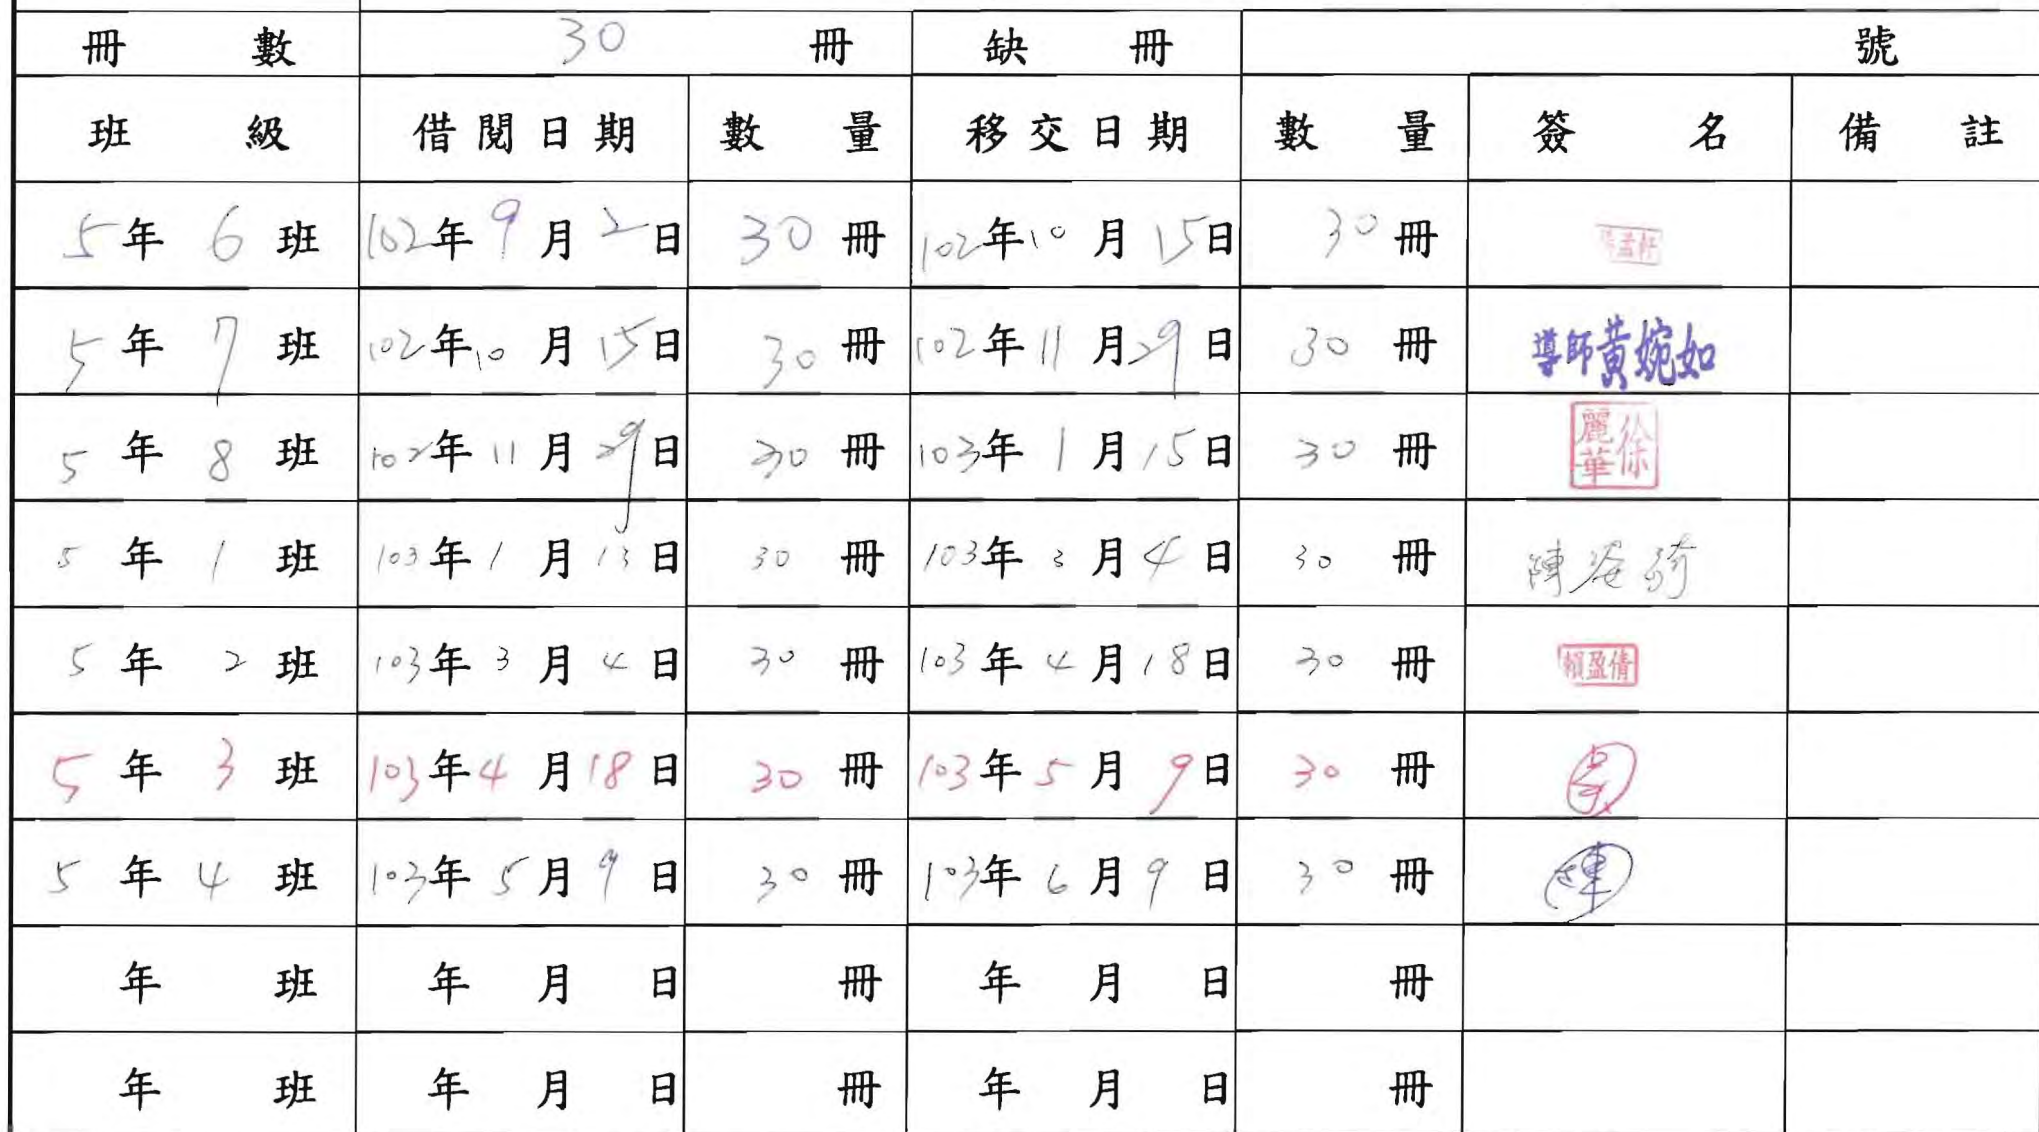 冊數 30 冊 缺冊 號
班級 借閱日期 數量 移交日期 數量 簽名 備註
5年6班 102年9月2日 30冊 102年10月15日 30冊
5年7班 102年10月15日 30冊 102年11月29日 30冊 導師黃婉如
5年8班 102年11月29日 30冊 103年1月15日 30冊 徐麗華
5年1班 103年1月13日 30冊 103年3月4日 30冊 陳
5年2班 103年3月4日 30冊 103年4月18日 30冊 賴盈倩
5年3班 103年4月18日 30冊 103年5月9日 30冊
5年4班 103年5月9日 30冊 103年6月9日 30冊
年 班 年 月 日 冊 年 月 日 冊
年 班 年 月 日 冊 年 月 日 冊